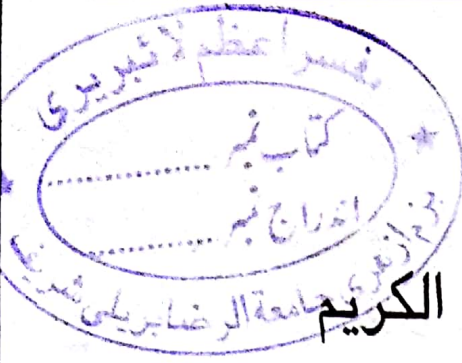 مفسر اعظم لائبریری
کتاب نمبر ..................
اندراج نمبر ..................
جامعة الرضا بریلی شریف
الكريم